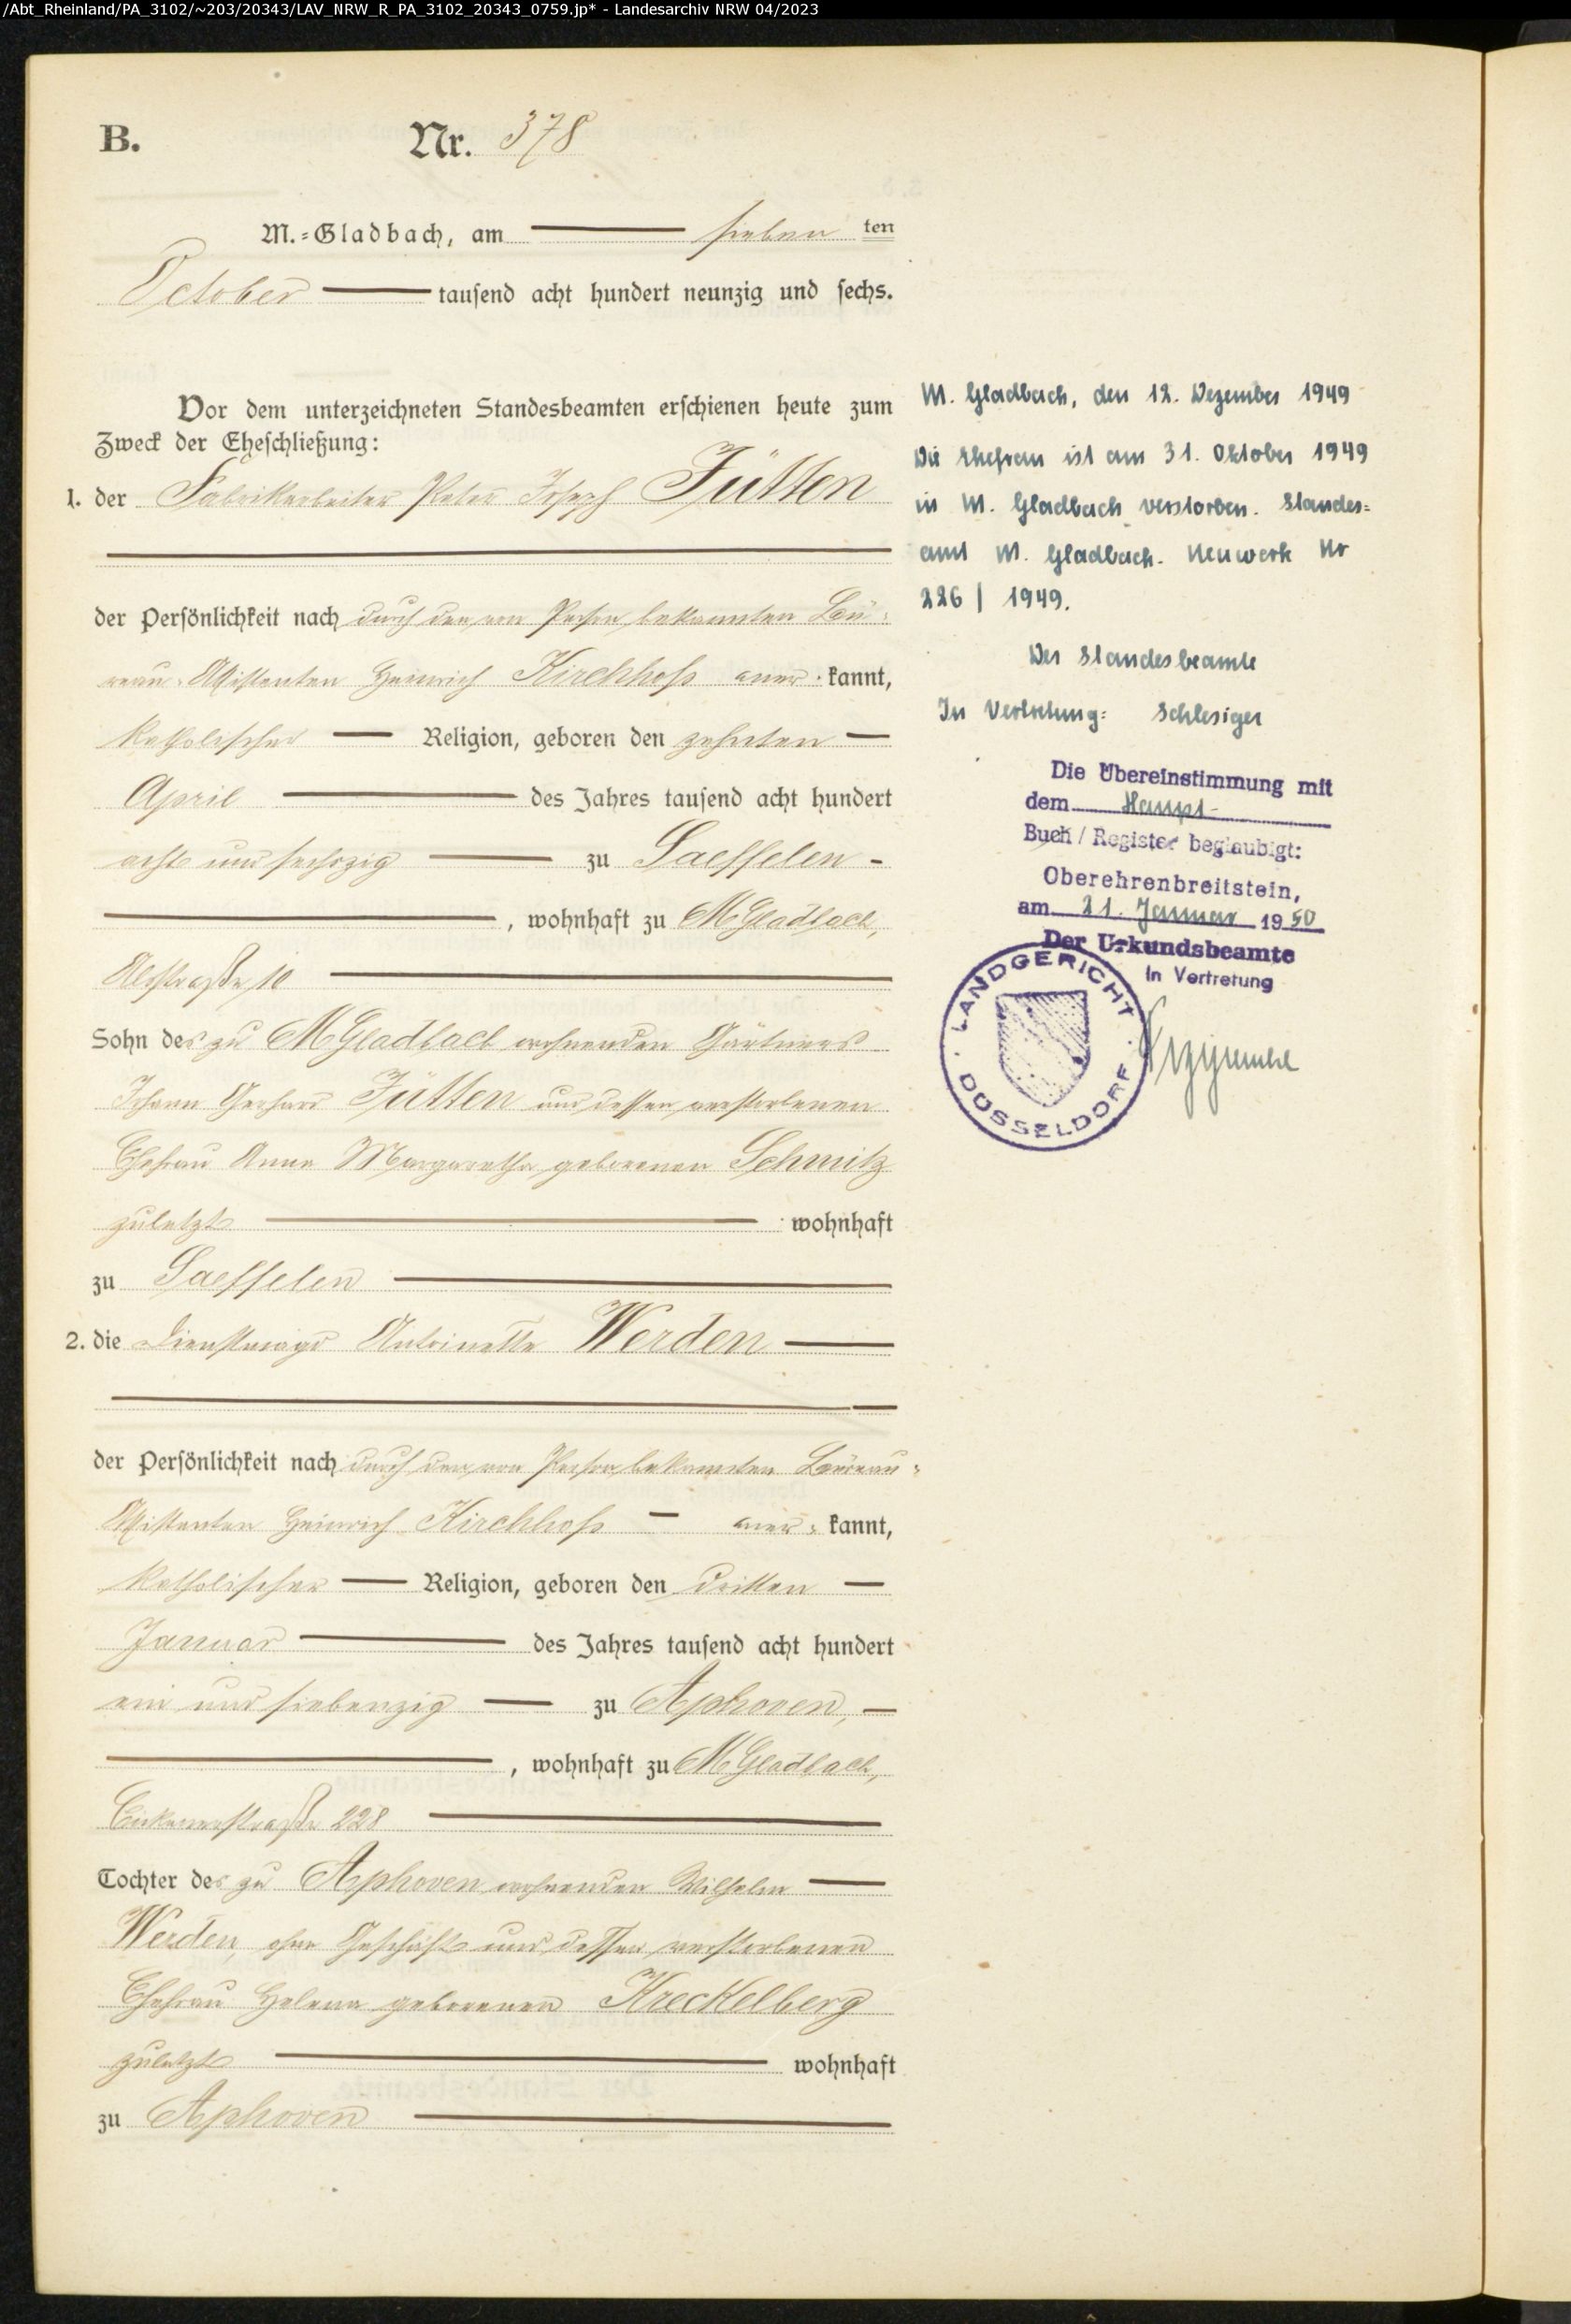 /Abt_Rheinland/PA_3102/~203/20343/LAV_NRW_R_PA_3102_20343_0759.jp* - Landesarchiv NRW 04/2023
B.
Nr. 378
M.=Gladbach, am sieben ten
October tausend acht hundert neunzig und sechs.
Vor dem unterzeichneten Standesbeamten erschienen heute zum
Zweck der Eheschließung:
1. der Fabrikarbeiter Peter Joseph Jütten
der Persönlichkeit nach durch den von Person bekannten Bü=
reau=Assistenten Heinrich Kirchhoff aner=kannt,
katholischer Religion, geboren den zehnten
April des Jahres tausend acht hundert
acht und sechszig zu Saeffelen
, wohnhaft zu MGladbach,
10
Sohn des zu MGladbach wohnenden Gärtners
Johann Gerhard Jütten und dessen verstorbenen
Ehefrau Anna Margaretha geborenen Schmitz
zuletzt wohnhaft
zu Saeffelen
2. die Dienstmagd Antoinette Werden
der Persönlichkeit nach durch den von Person bekannten Büreau=
Assistenten Heinrich Kirchhoff aner=kannt,
katholischer Religion, geboren den dritten
Januar des Jahres tausend acht hundert
ein und siebenzig zu Aphoven,
, wohnhaft zu MGladbach,
Eickenerstraße 228
Tochter des zu Aphoven wohnenden Wilhelm
Werden, ohne Geschäft und dessen verstorbenen
Ehefrau Helena geborenen Kreckelberg
zuletzt wohnhaft
zu Aphoven
M. Gladbach, den 12. Dezember 1949
Die Ehefrau ist am 31. Oktober 1949
in M. Gladbach verstorben. Standes=
amt M. Gladbach-Neuwerk Nr
226 / 1949.
Der Standesbeamte
In Vertretung: Schlesiger
Die Übereinstimmung mit
dem Haupt-
Buch / Register beglaubigt:
Oberehrenbreitstein,
am 21. Januar 1950
Der Urkundsbeamte
In Vertretung
LANDGERICHT
DÜSSELDORF